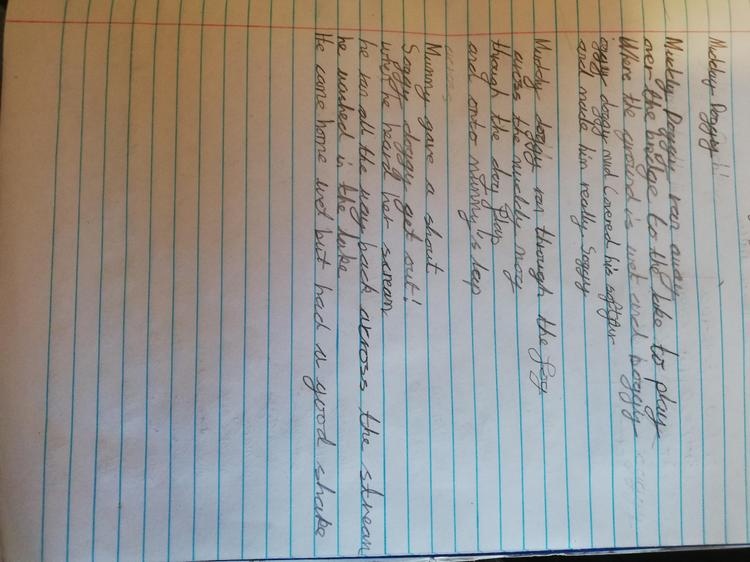 Muddy Doggy!!
Muddy Doggy ran away
over the bridge to the lake to play
Where the ground is wet and boggy
doggy mud covered his fur
and made him really soggy
Muddy doggy ran through the fog
across the muddy
through the dog flap
and onto Mummy's lap
across
Mummy gave a shout
Soggy doggy get out!
when he heard her scream
he ran all the way back across the stream
he washed in the lake
He came home wet but had a good shake